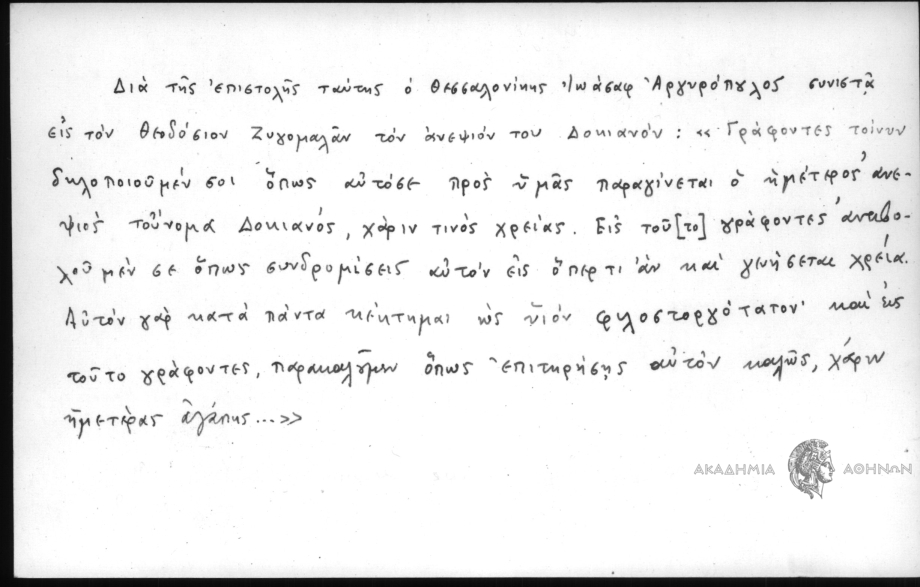 Διὰ τῆς ἐπιστολῆς ταύτης ὁ Θεσσαλονίκης Ἰωάσαφ Ἀργυρόπουλος συνιστᾷ
εἰς τὸν Θεοδόσιον Ζυγομαλᾶν τὸν ἀνεψιόν του Δοκιανόν: «Γράφοντες τοίνυν
δηλοποιοῦμέν σοι ὅπως αὐτόσε πρὸς ὑμᾶς παραγίνεται ὁ ἡμέτερος ἀνε-
ψιὸς τοὔνομα Δοκιανός, χάριν τινὸς χρείας. Εἰς τοῦ[το] γράφοντες ἀντιβο-
λοῦμέν σε ὅπως συνδρομίσεις αὐτὸν εἰς ὅπερ τι ἂν καὶ γενήσεται χρεία.
Αὐτὸν γὰρ κατὰ πάντα κέκτημαι ὡς υἱόν φιλοστοργότατον· καὶ εἰς
τοῦτο γράφοντες, παρακαλοῦμεν ὅπως ἐπιτηρήσῃς αὐτὸν καλῶς, χάριν
ἡμετέρας ἀγάπης...»
ΑΚΑΔΗΜΙΑ ΑΘΗΝΩΝ